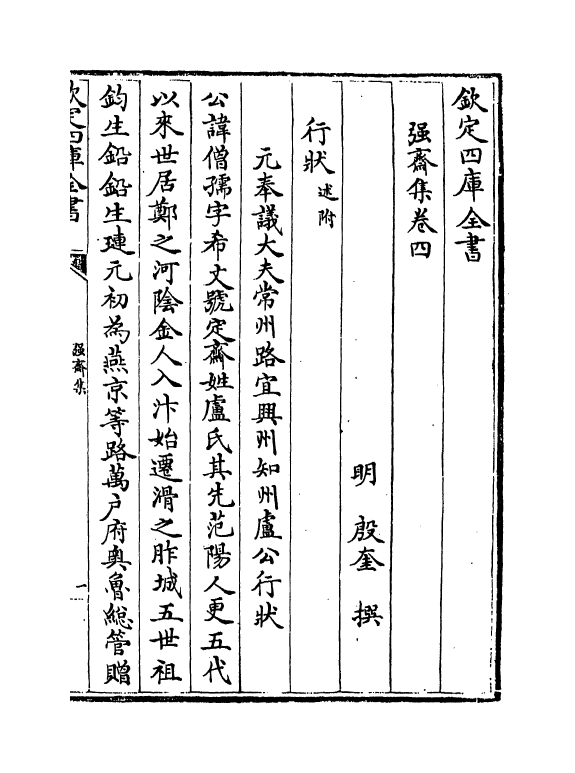 欽定四庫全書
强齋集卷四
明 殷奎 撰
行狀 述附
元奉議大夫常州路宜興州知州盧公行狀
公諱僧孺字希文號定齋姓盧氏其先范陽人更五代
以來世居鄭之河陰金人入汴始遷滑之胙城五世祖
鈞生鉛鉛生璉元初為燕京等路萬户府奥魯總管贈
欽定四庫全書
强齋集
一